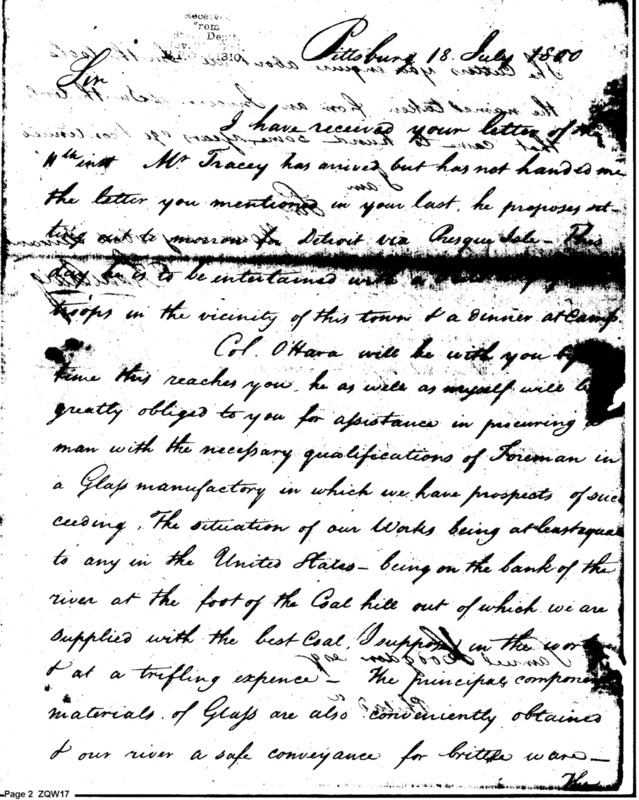 Received
from
Dept
Pittsburg 18. July 1800
Sir
I have received your letter of
11th inst Mr Tracey has arrived but has not handed me
the letter you mentioned in your last, he proposes set-
ting out to morrow for Detroit via Presque Isle – This
day he is to be entertained with a
troops in the vicinity of this town & a dinner at Camp.
Col. OHara will be with you by
time this reaches you, he as well as myself will be
greatly obliged to you for assistance in procuring a
man with the necessary qualifications of Foreman in
a Glass manufactory in which we have prospects of suc
ceeding, The situation of our Works being at least equal
to any in the United States – being on the bank of the
river at the foot of the Coal hill out of which we are
supplied with the best Coal, I suppose in the world
& at a trifling expence – The principal component
materials of Glass are also conveniently obtained
& our river a safe conveyance for brittle ware –
The
Page 2 ZQW17